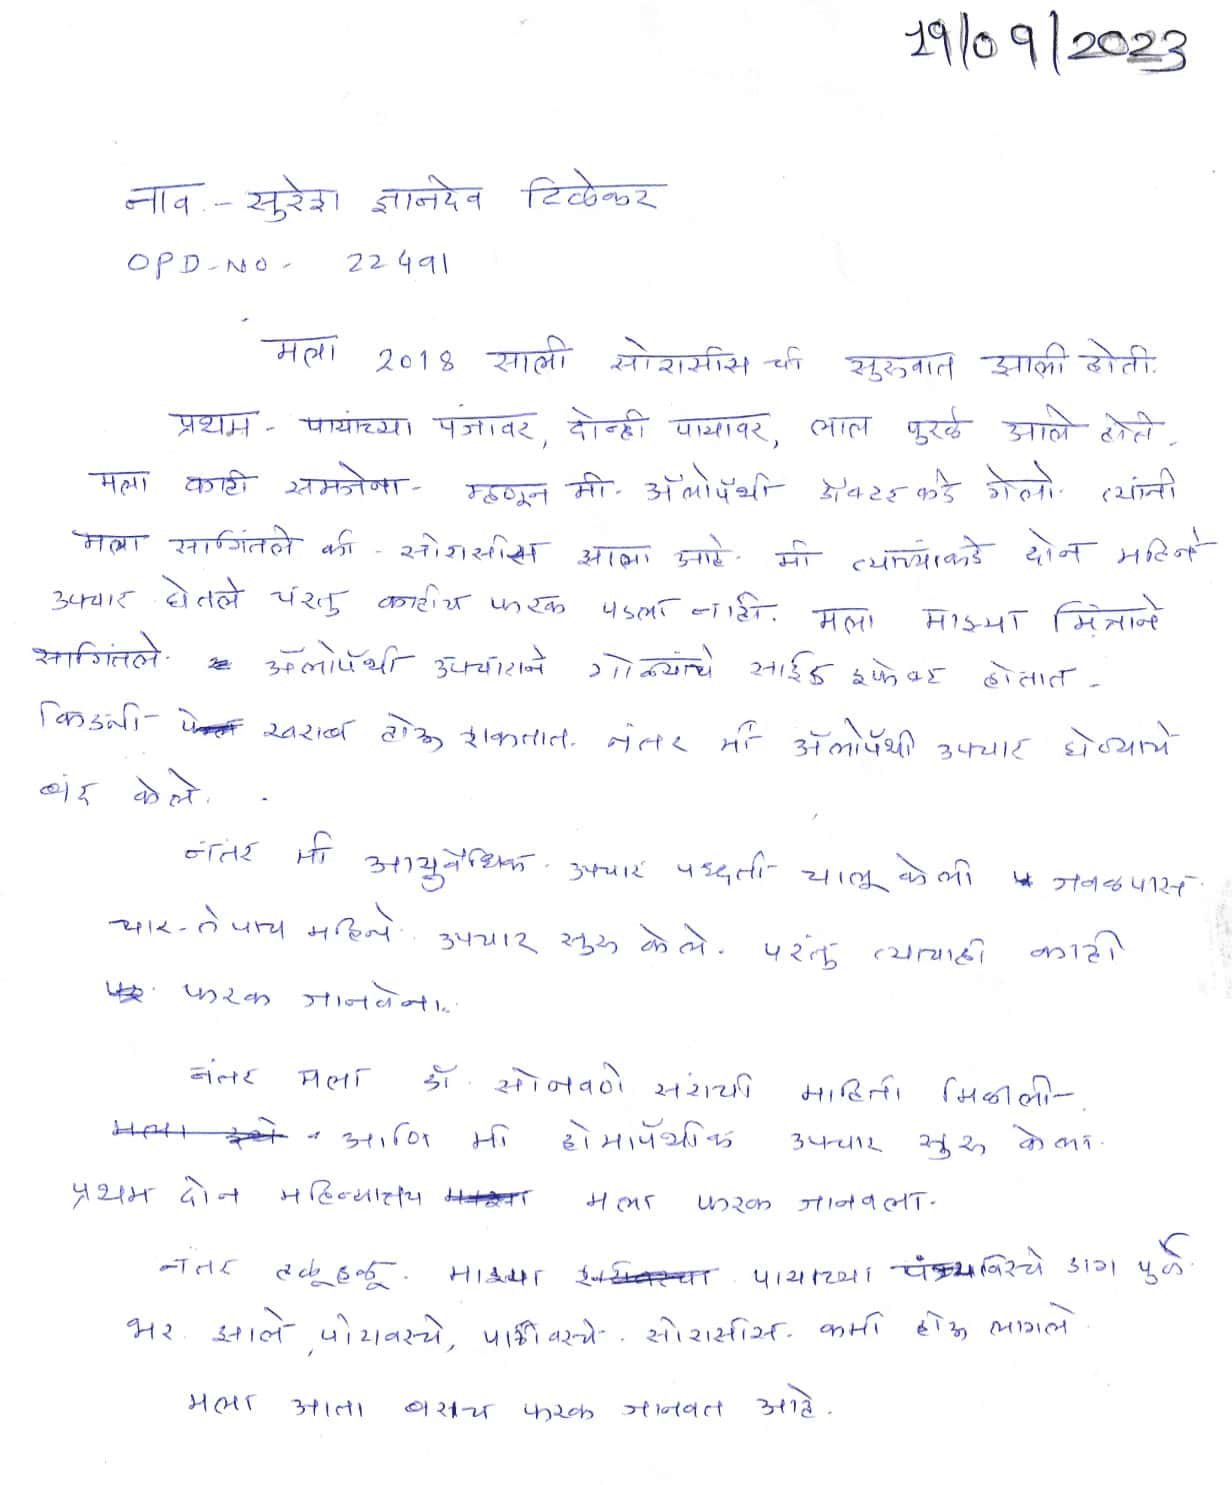 19/09/2023
नाव - सुरेश ज्ञानदेव टिळेकर
OPD-NO- 22491
मला 2018 साली सोरासीस ची सुरुवात झाली होती.
प्रथम - पायांच्या पंजावर, दोन्ही पायावर, लाल पुरळे आले होते.
मला काही समजेना - म्हणून मी. ॲलोपॅथी डॉक्टरकडे गेलो. त्यांनी
मला सांगितले की - सोरासीस झाला आहे. मी त्याच्यांकडे दोन महिने
उपचार घेतले परंतु काहीच फरक पडला नाही. मला माझ्या मित्राने
सागिंतले. ॲलोपॅथी उपचाराने गोळ्यांचे साईड इफेक्ट होतात -
किडनी - खराब होऊ शकतात. नंतर मी ॲलोपॅथी उपचार घेण्याचे
बंद केले.
नंतर मी आयुर्वेधिक उपचार पध्दती चालू केली जवळपास
चार - ते पाच महिने उपचार सुरु केले. परंतु त्याचाही काही
फरक जानवेना.
नंतर मला डॉ. सोनवणे सरांची माहिती मिळाली -
आणि मी होमोपॅथीक उपचार सुरु केला.
प्रथम दोन महिन्यातच मला फरक जानवला.
नंतर हळूहळू. माझ्या पायाच्या वरिचे डाग पुर्ळ
भर झाले, पोटावरचे, पाठीवरचे. सोरासीस. कमी होऊ लागले
मला आता बराच फरक जानवत आहे.